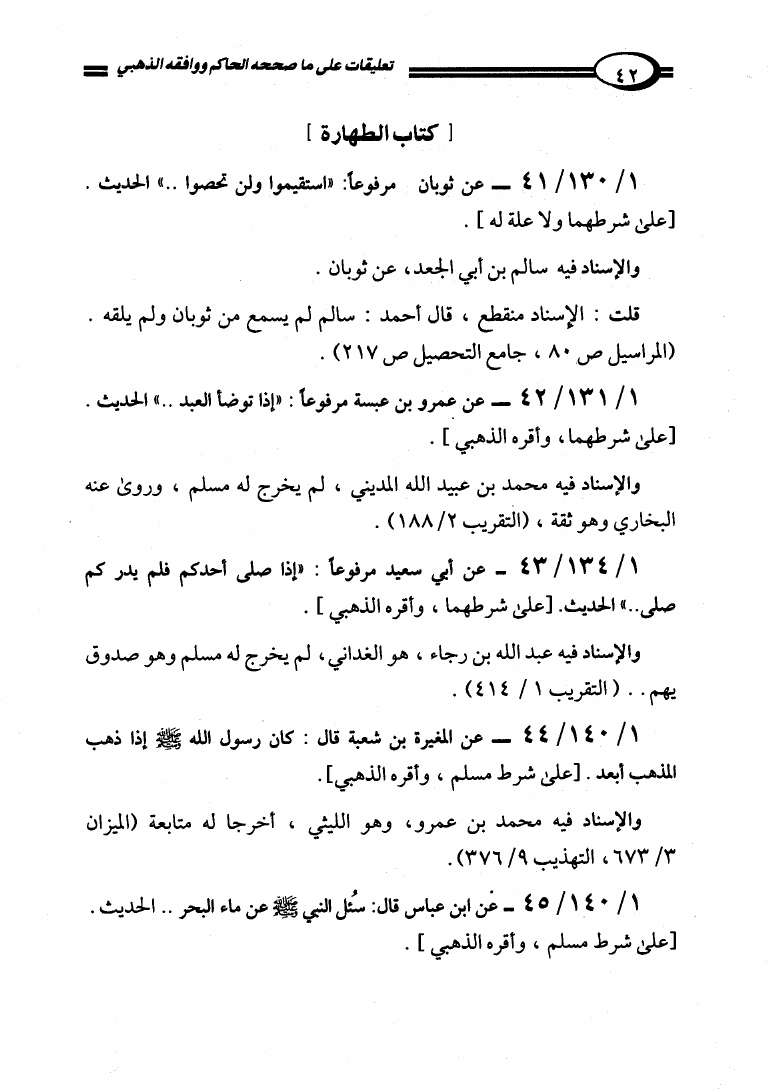 ٤٢ تعليقات على ما صححه الحاكم ووافقه الذهبي
[ كتاب الطهارة ]
١/ ١٣٠/ ٤١ ــ عن ثوبان مرفوعاً: «استقيموا ولن تحصوا ..» الحديث .
[علىٰ شرطهما ولا علة له ] .
والإسناد فيه سالم بن أبي الجعد، عن ثوبان .
قلت : الإسناد منقطع ، قال أحمد : سالم لم يسمع من ثوبان ولم يلقه .
(المراسيل ص ٨٠ ، جامع التحصيل ص ٢١٧) .
١/ ١٣١/ ٤٢ ــ عن عمرو بن عبسة مرفوعاً : «إذا توضأ العبد ..» الحديث .
[علىٰ شرطهما، وأقره الذهبي ] .
والإسناد فيه محمد بن عبيد الله المديني ، لم يخرج له مسلم ، وروىٰ عنه
البخاري وهو ثقة ، (التقريب ٢/ ١٨٨) .
١/ ١٣٤/ ٤٣ ـ عن أبي سعيد مرفوعاً : «إذا صلى أحدكم فلم يدر كم
صلى..» الحديث. [علىٰ شرطهما ، وأقره الذهبي ] .
والإسناد فيه عبد الله بن رجاء ، هو الغداني، لم يخرج له مسلم وهو صدوق
يهم . . ( التقريب ١/ ٤١٤) .
١/ ١٤٠/ ٤٤ ــ عن المغيرة بن شعبة قال : كان رسول الله ﷺ إذا ذهب
المذهب أبعد . [علىٰ شرط مسلم ، وأقره الذهبي].
والإسناد فيه محمد بن عمرو، وهو الليثي ، أخرجا له متابعة (الميزان
٣/ ٦٧٣ ، التهذيب ٩/ ٣٧٦).
١/ ١٤٠/ ٤٥ ـ عن ابن عباس قال: سُئل النبي ﷺ عن ماء البحر .. الحديث .
[علىٰ شرط مسلم ، وأقره الذهبي ] .